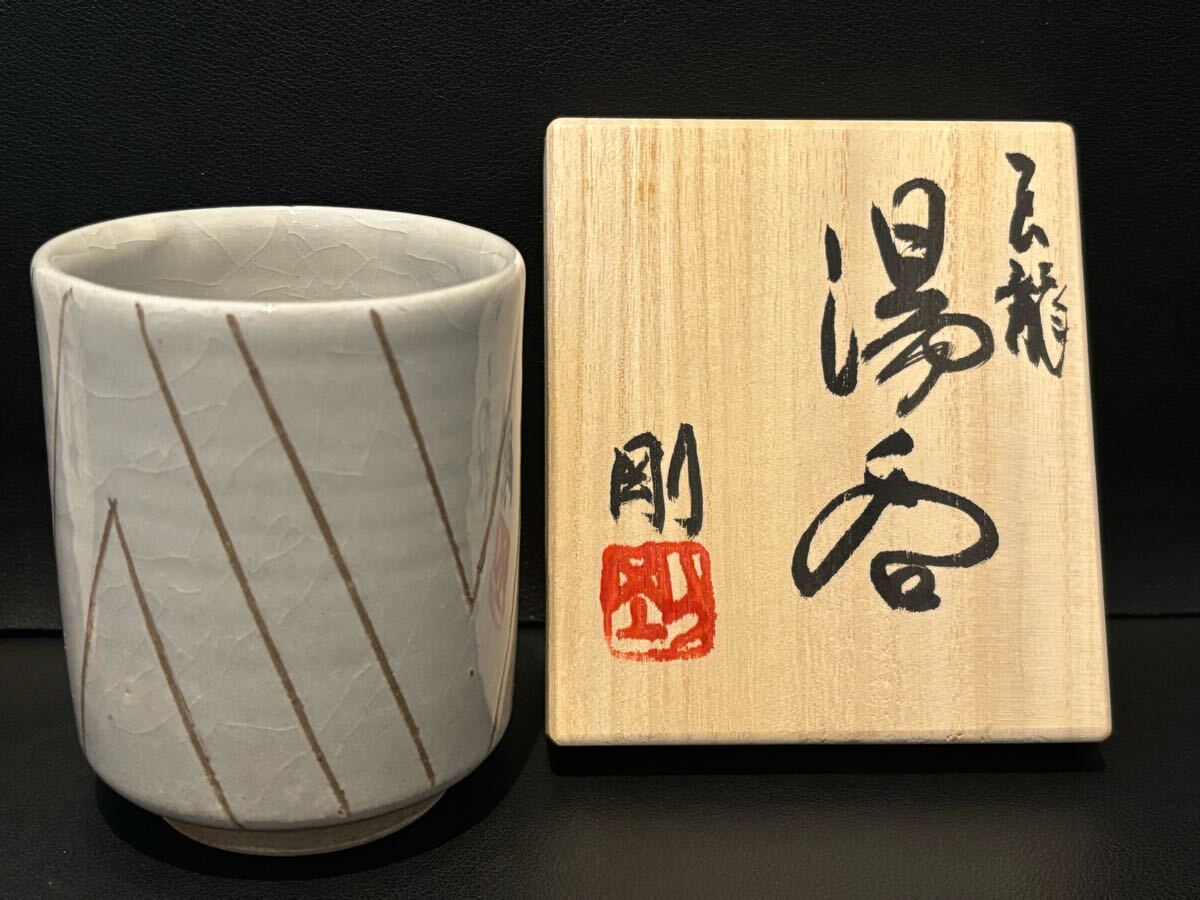 玄龍
湯呑
剛
剛